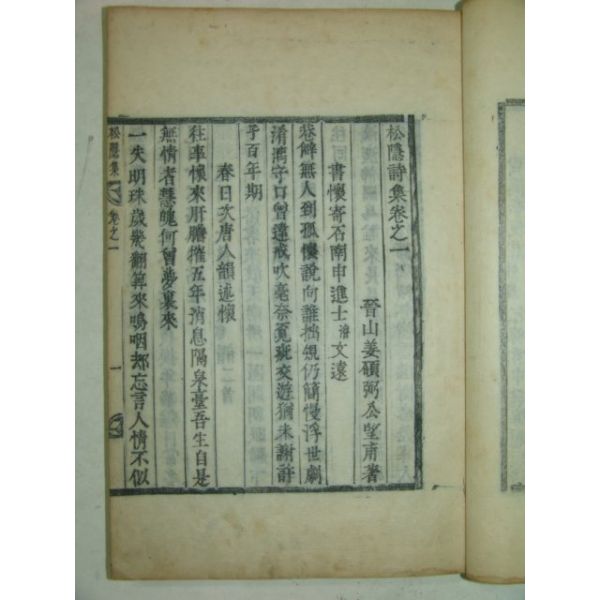 松隱詩集卷之一
晉山姜碩弼公望甫著
書懷寄石南申進士 文遠
巷僻無人到孤懷說向誰拙規仍簡慢浮世劇
淆漓守口曾遠戒吹毫奈覓疵交遊猶未謝許
子百年期
春日次唐人韻述懷 二首
往事懷來肝膽摧五年消息隔泉臺吾生自是
無情者慧魄何曾夢裏來
一失明珠歲幾翻算來嗚咽却忘言人情不似
松隱集 卷之一 一